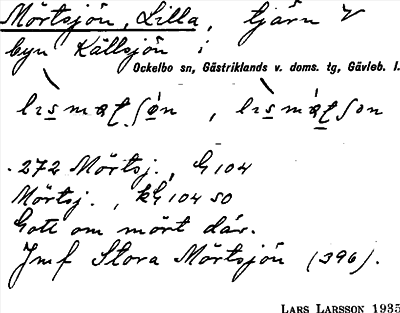 Mörtsjön, Lilla, tjärn V
byn Källsjön i
Ockelbo sn, Gästriklands v. doms. tg, Gävleb. l.
.272 Mörtsj., G 104
Mörtsj., kG 104 SO
Gott om mört där.
Jmf Stora Mörtsjön (396).
LARS LARSSON 1935